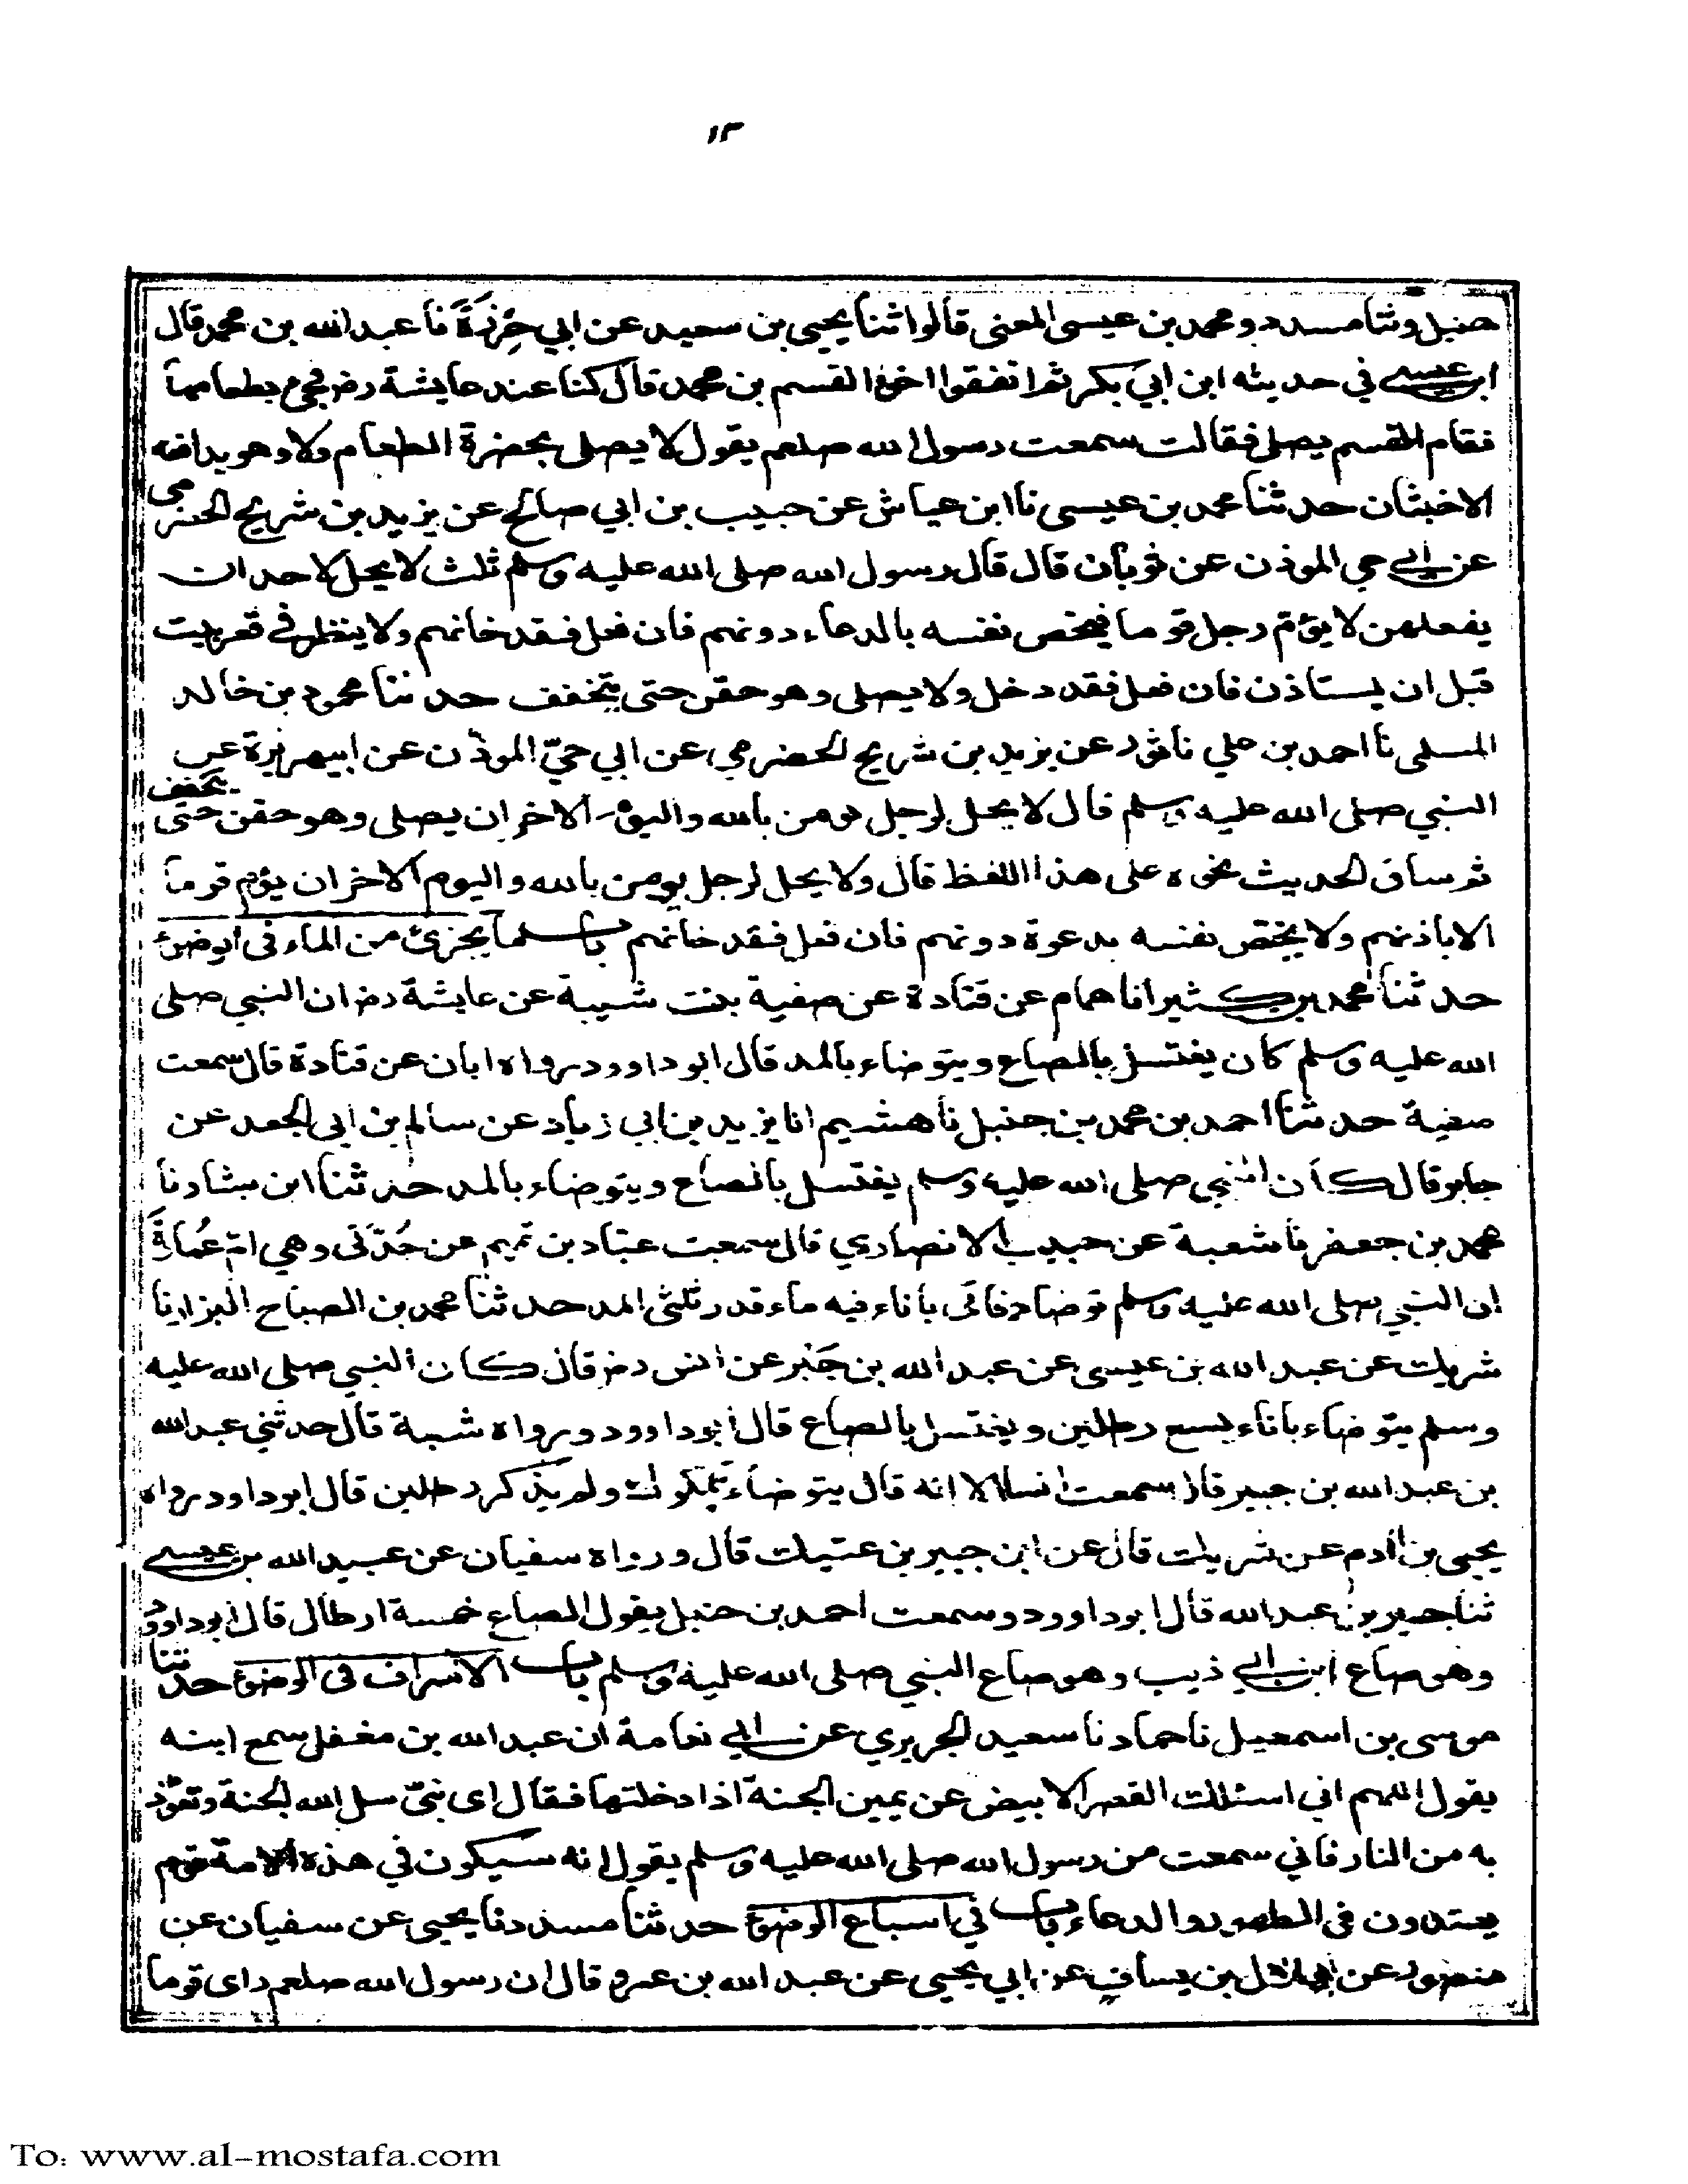 ١٢
حنبل وثنا مسدد ومحمد بن عيسى المعنى قالوا ثنا يحيى بن سعيد عن ابي حَزْرَةَ نا عبد الله بن محمد قال
ابن عيسى في حديثه ابن ابي بكر ثم اتفقوا اخو القسم بن محمد قال كنا عند عايشة رض فجيء بطعامها
فقام القسم يصلي فقالت سمعت رسول الله صلعم يقول لا يصلى بحضرة الطعام ولا وهو يدافعه
الاخبثان حدثنا محمد بن عيسى نا ابن عياش عن حبيب بن ابي صالح عن يزيد بن شريح الحضرمي
عن ابي حي الموذن عن ثوبان قال قال رسول الله صلى الله عليه وسلم ثلث لا يحل لاحد ان
يفعلهن لا يؤم رجل قوما فيخص نفسه بالدعاء دونهم فان فعل فقد خانهم ولا ينظر في قعر بيت
قبل ان يستاذن فان فعل فقد دخل ولا يصلي وهو حقن حتى يتخفف حدثنا محمود بن خالد
السلمى نا احمد بن علي نا ثور عن يزيد بن شريح الحضرمي عن ابي حيّ الموذن عن ابي هريرة عن
النبي صلى الله عليه وسلم قال لا يحل لرجل يومن بالله واليوم الاخر ان يصلى وهو حقن حتى يتخفف
ثم ساق الحديث نحوه على هذا اللفظ قال ولا يحل لرجل يومن بالله واليوم الاخر ان يؤم قوما
الا باذنهم ولا يختص نفسه بدعوة دونهم فان فعل فقد خانهم باب ما يجزئ من الماء فى الوضوء
حدثنا محمد بن كثير انا همام عن قتادة عن صفية بنت شيبة عن عايشة رض ان النبي صلى
الله عليه وسلم كان يغتسل بالصاع ويتوضاء بالمد قال ابو داوود رواه ابان عن قتادة قال سمعت
صفية حدثنا احمد بن محمد بن حنبل نا هشيم انا يزيد بن ابي زياد عن سالم بن ابى الجعد عن
جابر قال كان النبي صلى الله عليه وسلم يغتسل بالصاع ويتوضاء بالمد حدثنا ابن بشار نا
محمد بن جعفر نا شعبة عن حبيب الانصاري قال سمعت عباد بن تميم عن جَدَّتى وهي ام عُمارةَ
ان النبي صلى الله عليه وسلم توضا فاتى باناء فيه ماء قدر ثلثى المد حدثنا محمد بن الصباح البزاز نا
شريك عن عبد الله بن عيسى عن عبد الله بن جَبْر عن انس رض قال كان النبي صلى الله عليه
وسلم يتوضاء باناء يسع رطلين ويغتسل بالصاع قال ابو داوود ورواه شعبة قال حدثني عبد الله
بن عبد الله بن جبير قال سمعت انسا الا انه قال يتوضاء بمكوك ولم يذكر رطلين قال ابو داوود رواه
يحيى بن ادم عن شريك قال عن ابن جبير بن عتيك قال ورواه سفيان عن عبد الله بن عيسى
ثنا جبير بن عبد الله قال ابو داوود وسمعت احمد بن حنبل يقول الصاع خمسة ارطال قال ابو داوود
وهو صاع ابن ابي ذيب وهو صاع النبي صلى الله عليه وسلم باب الاسراف فى الوضوء حدثنا
موسى بن اسمعيل نا حماد نا سعيد الجريري عن ابي نعامة ان عبد الله بن مغفل سمع ابنه
يقول اللهم اني اسئلك القصر الابيض عن يمين الجنة اذا دخلتها فقال اى بنىّ سل الله الجنة وتعوّذ
به من النار فاني سمعت من رسول الله صلى الله عليه وسلم يقول انه سيكون في هذه الامة قوم
يعتدون فى الطهور والدعاء باب في اسباغ الوضوء حدثنا مسدد نا يحيى عن سفيان عن
منصور عن هلال بن يساف عن ابي يحيى عن عبد الله بن عمرو قال ان رسول الله صلعم راى قوما
To: www.al-mostafa.com